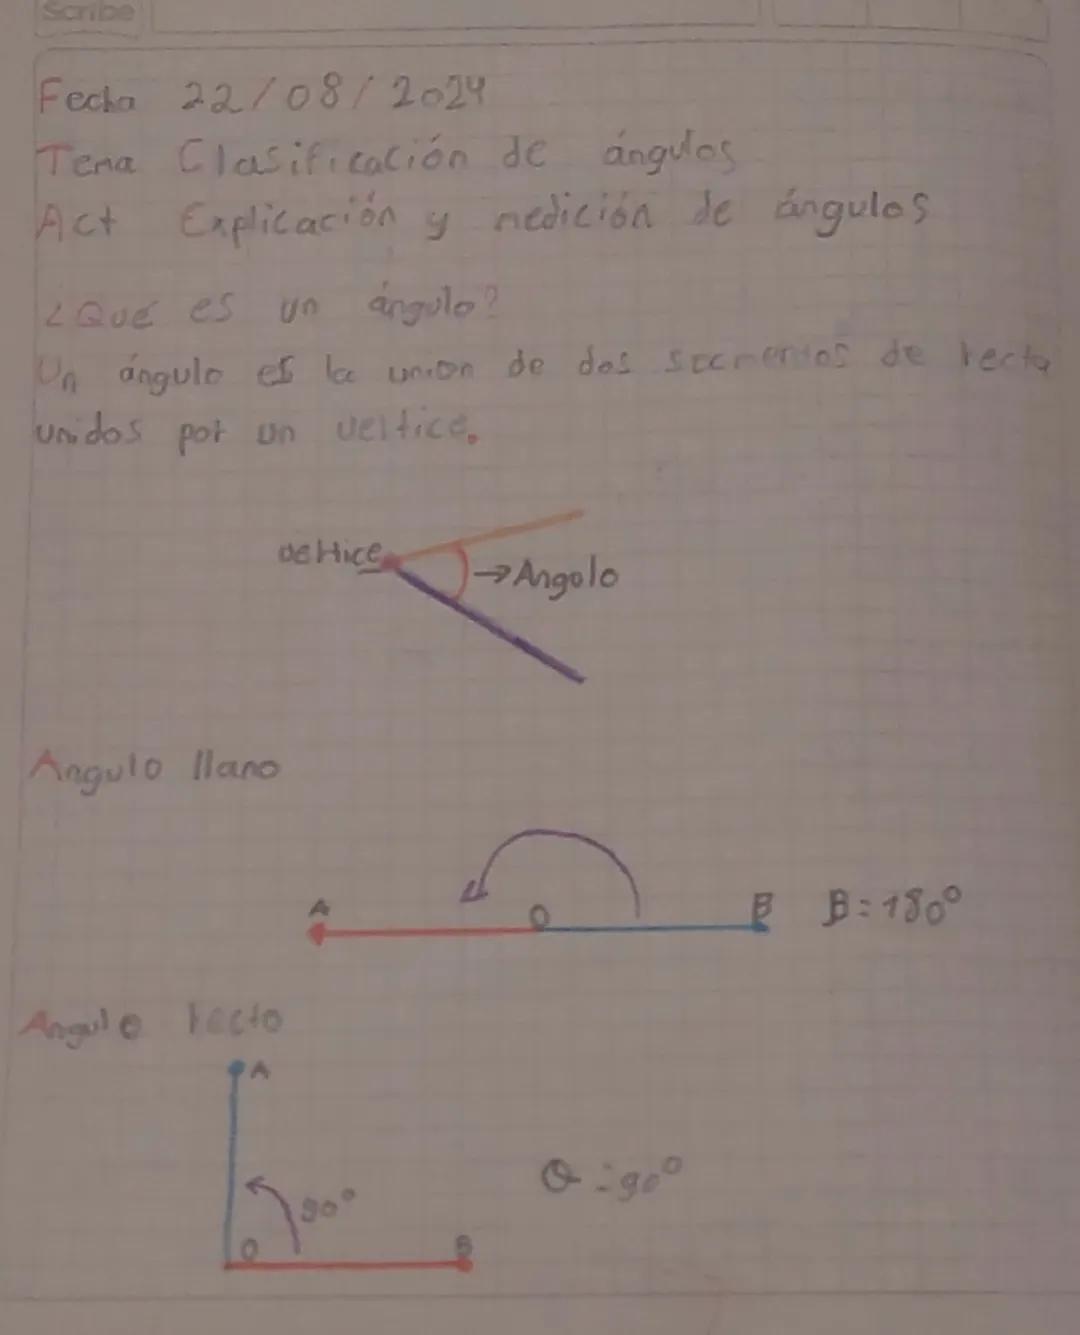 Scribe
Fecha 22/08/2024
Tema Clasificación de ángulos
Act Explicación y medición de ángulos
¿Qué es un ángulo?
Un ángulo es la union de dos secmentos de recta
unidos por un vertice.
vertice
→Angolo
Angulo llano
A O B B=180°
Angulo recto
A
90°
O B
Θ=90°